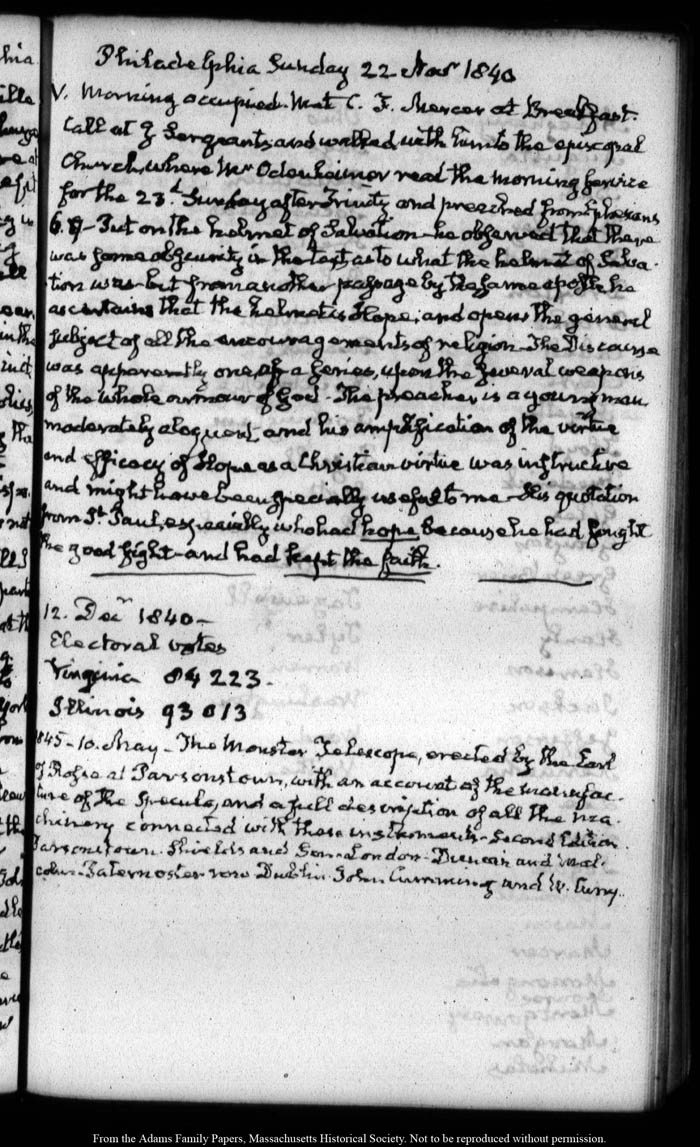 Philadelphia Sunday 22 Novr 1840
V. Morning occupied. Met C. F. Mercer at Breakfast.
Call at J Sergeants, and walked with him to the episcopal
Church, where Mr Odenheimer read the morning service
for the 23.d Sunday after Trinity and preached from Ephesians
6. 17 - Put on the helmet of Salvation - he observed that there
was some obscurity in the text as to what the helmet of Salva-
tion was - but from another passage by the same apostle he
ascertains that the helmet is Hope, and opens the general
subject of all the encouragements of religion - The Discourse
was apparently one, of a series, upon the several weapons
of the whole armour of God - The preacher is a young man
moderately eloquent, and his amplification of the virtue
and efficacy of Hope as a Christian virtue was instructive
and might have been specially useful to me - His quotation
from St. Paul, especially who had hope because he had fought
the good fight - and had kept the faith.
12. Decr 1840 -
Electoral votes
Virginia 84 223.
Illinois 93 013
1845 - 10. May - The Monster Telescope, erected by the Earl
of Rosse at Parsonstown, with an account of the manufac-
ture of the Specula, and a full description of all the ma-
chinery connected with these instruments - Second Edition.
Parsonstown. Shields and Son - London - Duncan and Mal-
colm - Paternoster row Dublin. John Cumming and W. Curry.
From the Adams Family Papers, Massachusetts Historical Society. Not to be reproduced without permission.